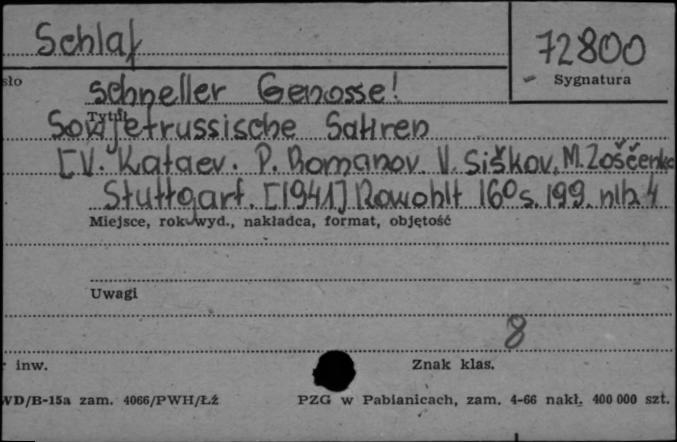 Schlaf
72800
sło
Sygnatura
schneller Genosse!
Tytuł
Sowjetrussische Satiren
[V. Kataev. P. Romanov. V. Šiškov. M. Zoščenko
Stuttgart. [1941] Rowohlt 16° s. 199. nlb. 4
Miejsce, rok wyd., nakładca, format, objętość
Uwagi
8
r inw.
Znak klas.
WD/B-15a zam. 4066/PWH/Łź
PZG w Pabianicach, zam. 4-66 nakł. 400 000 szt.